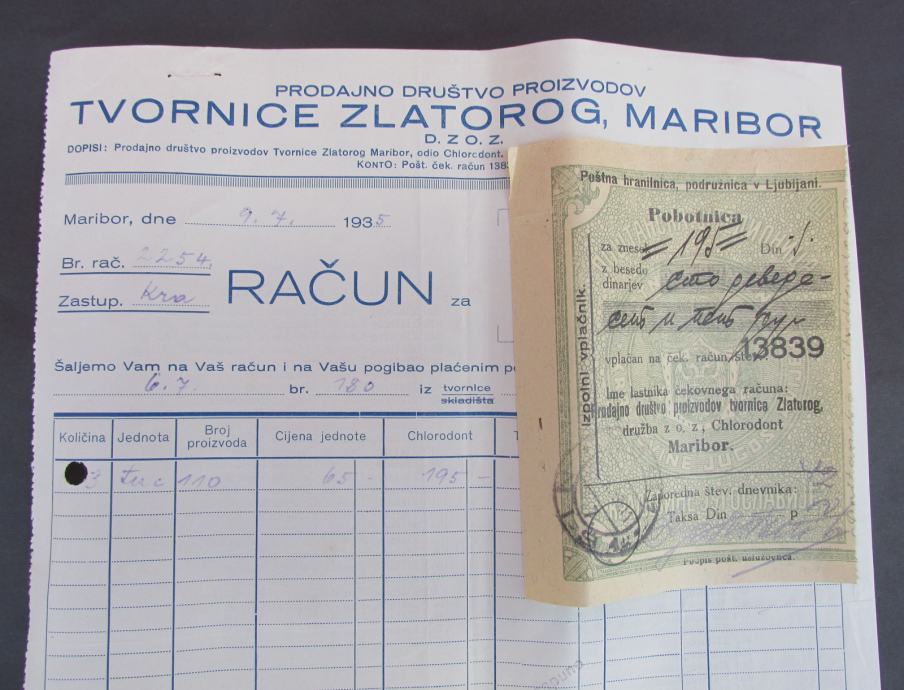 PRODAJNO DRUŠTVO PROIZVODOV
TVORNICE ZLATOROG, MARIBOR
D. Z O. Z.
DOPISI: Prodajno društvo proizvodov Tvornice Zlatorog Maribor, odio Chlorodont.
KONTO: Pošt. ček. račun 138
Maribor, dne 9. 7. 1935
Br. rač. 2254.
Zastup. Kra
RAČUN za
Šaljemo Vam na Vaš račun i na Vašu pogibao plaćenim
6. 7. br. 180 iz tvornice
skladišta
Količina Jednota Broj proizvoda Cijena jednote Chlorodont
3 tuc 110 65 - 195 -
Poštna hranilnica, podružnica v Ljubljani.
Pobotnica
za znesek =195= Din
z besedo
dinarjev сто деведе-
сет и пет
vplačan na ček. račun štev. 13839
Ime lastnika čekovnega računa:
Prodajno društvo proizvodov tvornica Zlatorog,
družba z o. z., Chlorodont
Maribor.
Izpolni vplačnik.
Zaporedna štev. dnevnika:
Taksa Din p
Podpis pošt. uslužbenca.